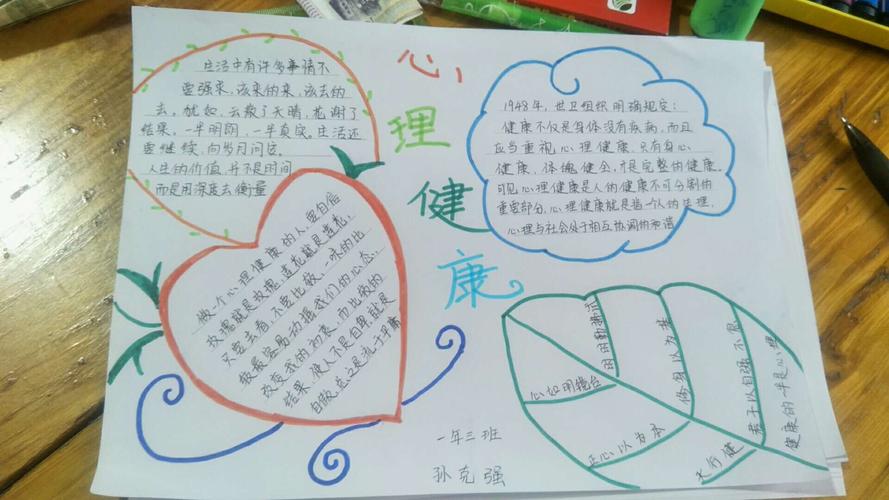 心理健康
生活中有许多事情不
要强求，该来的来，该去的
去。就如，云散了天晴，花谢了
结果，一半明朗，一半真实。生活还
要继续，向岁月问安。
人生的价值，并不是时间
而是用深度去衡量
做个心理健康的人，要自信
玫瑰就是玫瑰，莲花就是莲花，
只要去看，不要比较，一味的比
较最容易动摇我们的心态，
改变我的初衷，而比较的
结果，使人不是自卑，就是
自傲，总之是流于平庸
1948年，世卫组织明确规定：
健康不仅是身体没有疾病，而且
应当重视心理健康，只有身心
健康，体魄健全，才是完整的健康。
可见心理健康是人的健康不可分割的
重要部分，心理健康就是指一个人的生理，
心理与社会处于相互协调的和谐
心如明镜台
时时勤拂拭
修身以为基
君子以自强不息
健康的一半是心理
正心以为本
天行健
一年三班
孙克强